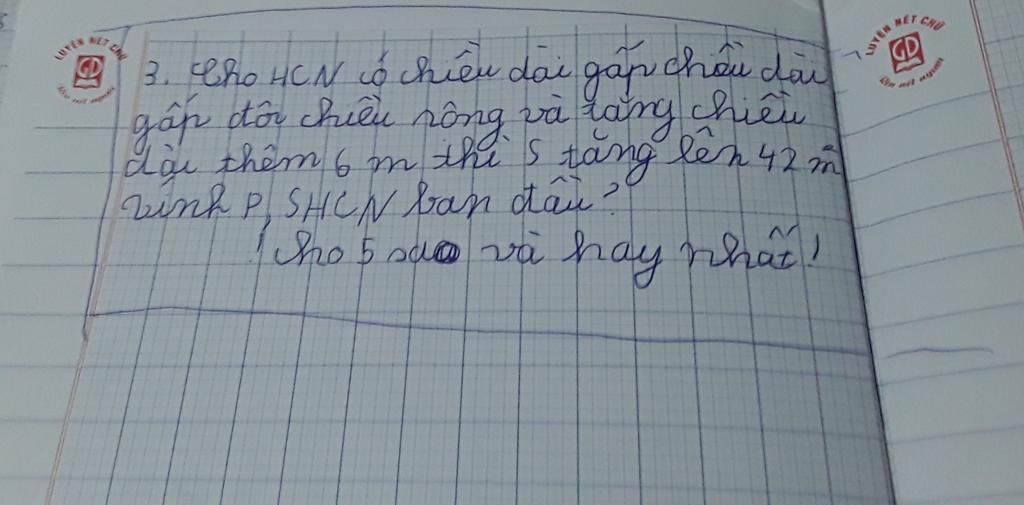 LUYỆN NÉT CHỮ
GD
LUYỆN NÉT CHỮ
GD
3. Cho HCN có chiều dài gấp chiều dài
gấp đôi chiều rông và tăng chiều
dài thêm 6 m thì S tăng lên 42 m
tính P, SHCN ban đầu?
! Cho 5 sao và hay nhất!